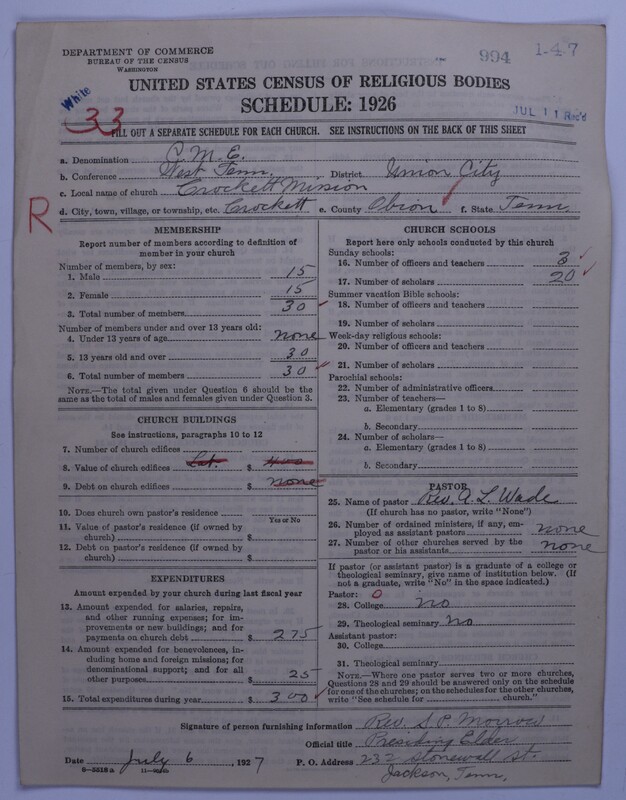 DEPARTMENT OF COMMERCE
BUREAU OF THE CENSUS
WASHINGTON
994
1-4-7
White
UNITED STATES CENSUS OF RELIGIOUS BODIES
SCHEDULE: 1926
JUL 11 Rec'd
33
FILL OUT A SEPARATE SCHEDULE FOR EACH CHURCH. SEE INSTRUCTIONS ON THE BACK OF THIS SHEET
a. Denomination C. M. E.
b. Conference West Tenn. District Union City
c. Local name of church Crockett Mission
R
d. City, town, village, or township, etc. Crockett e. County Obion f. State Tenn.
MEMBERSHIP
Report number of members according to definition of member in your church
Number of members, by sex:
1. Male 15
2. Female 15
3. Total number of members 30
Number of members under and over 13 years old:
4. Under 13 years of age none
5. 13 years old and over 30
6. Total number of members 30
NOTE.—The total given under Question 6 should be
same as the total of males and females given under Question 3.
CHURCH BUILDINGS
See instructions, paragraphs 10 to 12
7. Number of church edifices
8. Value of church edifices Lot. $ 400
9. Debt on church edifices $ none
10. Does church own pastor's residence
Yes or No
11. Value of pastor's residence (if owned by
church) $
12. Debt on pastor's residence (if owned by
church) $
EXPENDITURES
Amount expended by your church during last fiscal year
13. Amount expended for salaries, repairs,
and other running expenses; for im-
provements or new buildings; and for
payments on church debt $ 275
14. Amount expended for benevolences, in-
cluding home and foreign missions; for
denominational support; and for all
other purposes $ 25
15. Total expenditures during year $ 300
CHURCH SCHOOLS
Report here only schools conducted by this church
Sunday schools:
16. Number of officers and teachers 3
17. Number of scholars 20
Summer vacation Bible schools:
18. Number of officers and teachers
19. Number of scholars
Week-day religious schools:
20. Number of officers and teachers
21. Number of scholars
Parochial schools:
22. Number of administrative officers
23. Number of teachers—
a. Elementary (grades 1 to 8)
b. Secondary
24. Number of scholars—
a. Elementary (grades 1 to 8)
b. Secondary
PASTOR
25. Name of pastor Rev. A. L. Wade
(If church has no pastor, write "None")
26. Number of ordained ministers, if any, em-
ployed as assistant pastors none
27. Number of other churches served by the
pastor or his assistants none
If pastor (or assistant pastor) is a graduate of a college or
theological seminary, give name of institution below. (If
not a graduate, write "No" in the space indicated.)
Pastor: 0
28. College no
29. Theological seminary no
Assistant pastor:
30. College
31. Theological seminary
NOTE.—Where one pastor serves two or more churches,
Questions 28 and 29 should be answered only on the schedule
for one of the churches; on the schedules for the other churches,
write "See schedule for church."
Signature of person furnishing information Rev. S. P. Morrow
Official title Presiding Elder
Date July 6, 1927 P. O. Address 232 Stonewall St.
Jackson, Tenn,